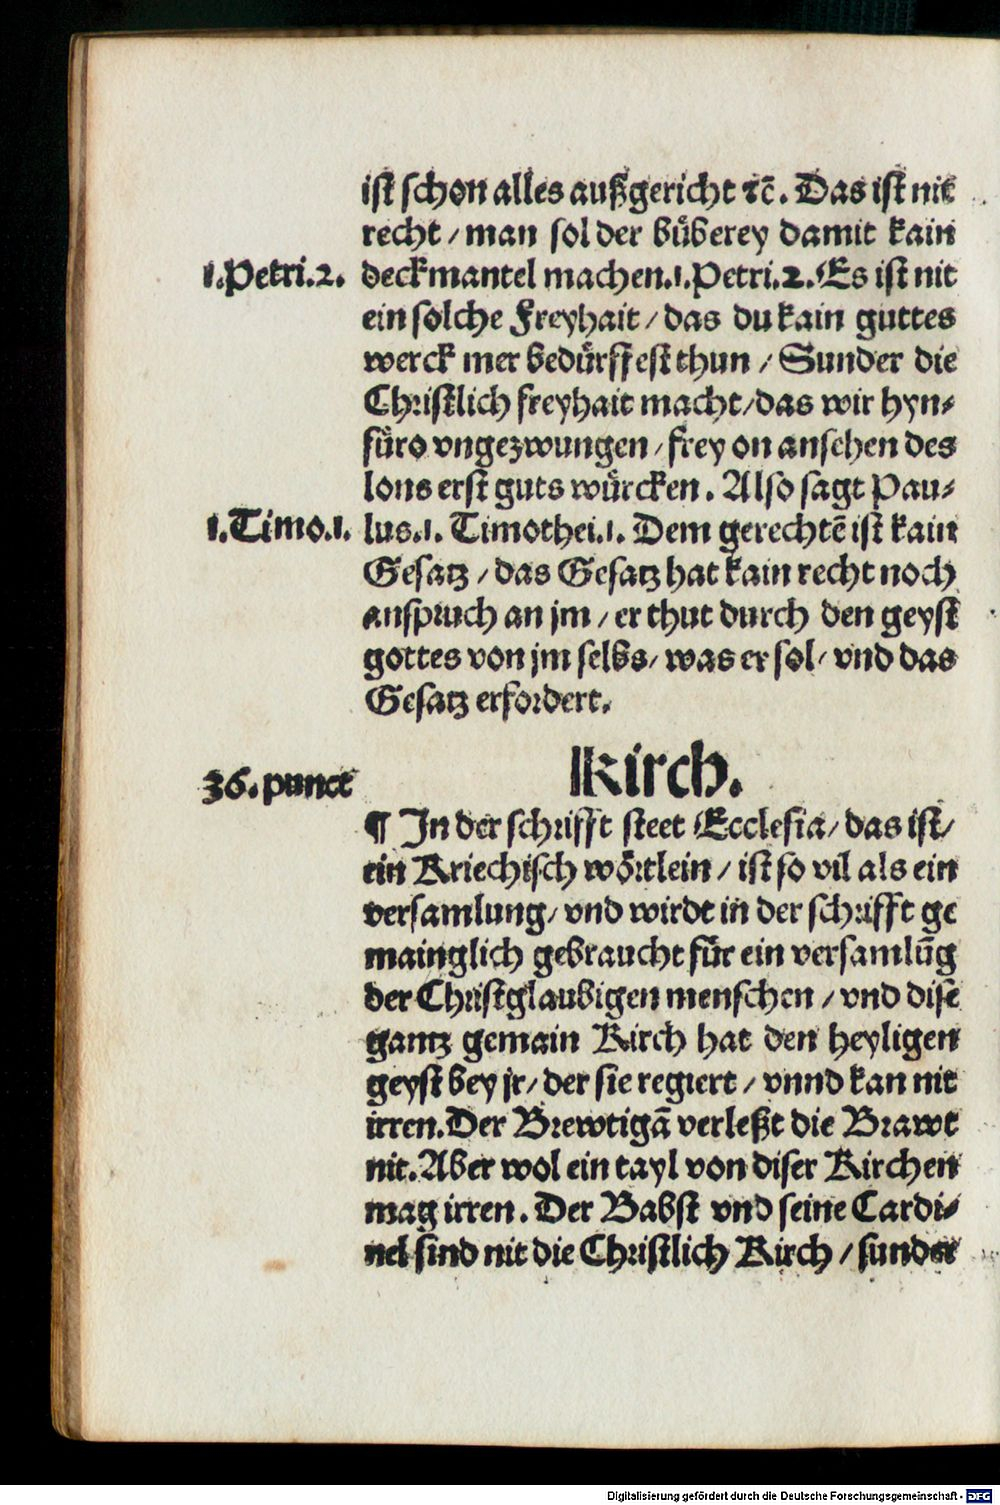 ist schon alles außgericht ꝛc̄. Das ist nit
recht / man sol der bůberey damit kain
1.Petri.2. deckmantel machen.1.Petri.2. Es ist nit
ein solche Freyhait / das du kain guttes
werck mer bedürffest thun / Sunder die
Christlich freyhait macht / das wir hyn⸗
füro vngezwungen / frey on ansehen des
lons erst guts würcken. Also sagt Pau⸗
1.Timo.1. lus.1. Timothei.1. Dem gerechtē ist kain
Gesatz / das Gesatz hat kain recht noch
anspruch an jm / er thut durch den geyst
gottes von jm selbs / was er sol / vnd das
Gesatz erfordert.
Kirch.
36. punct
¶ In der schrifft steet Ecclesia / das ist /
ein Kriechisch wörtlein / ist so vil als ein
versamlung / vnd wirdt in der schrifft ge
mainglich gebraucht für ein versamlūg
der Christglaubigen menschen / vnd dise
gantz gemain Kirch hat den heyligen
geyst bey jr / der sie regiert / vnnd kan nit
irren. Der Brewtigā verleßt die Brawt
nit. Aber wol ein tayl von diser Kirchen
mag irren. Der Babst vnd seine Cardi⸗
nel sind nit die Christlich Kirch / sunder
Digitalisierung gefördert durch die Deutsche Forschungsgemeinschaft - DFG